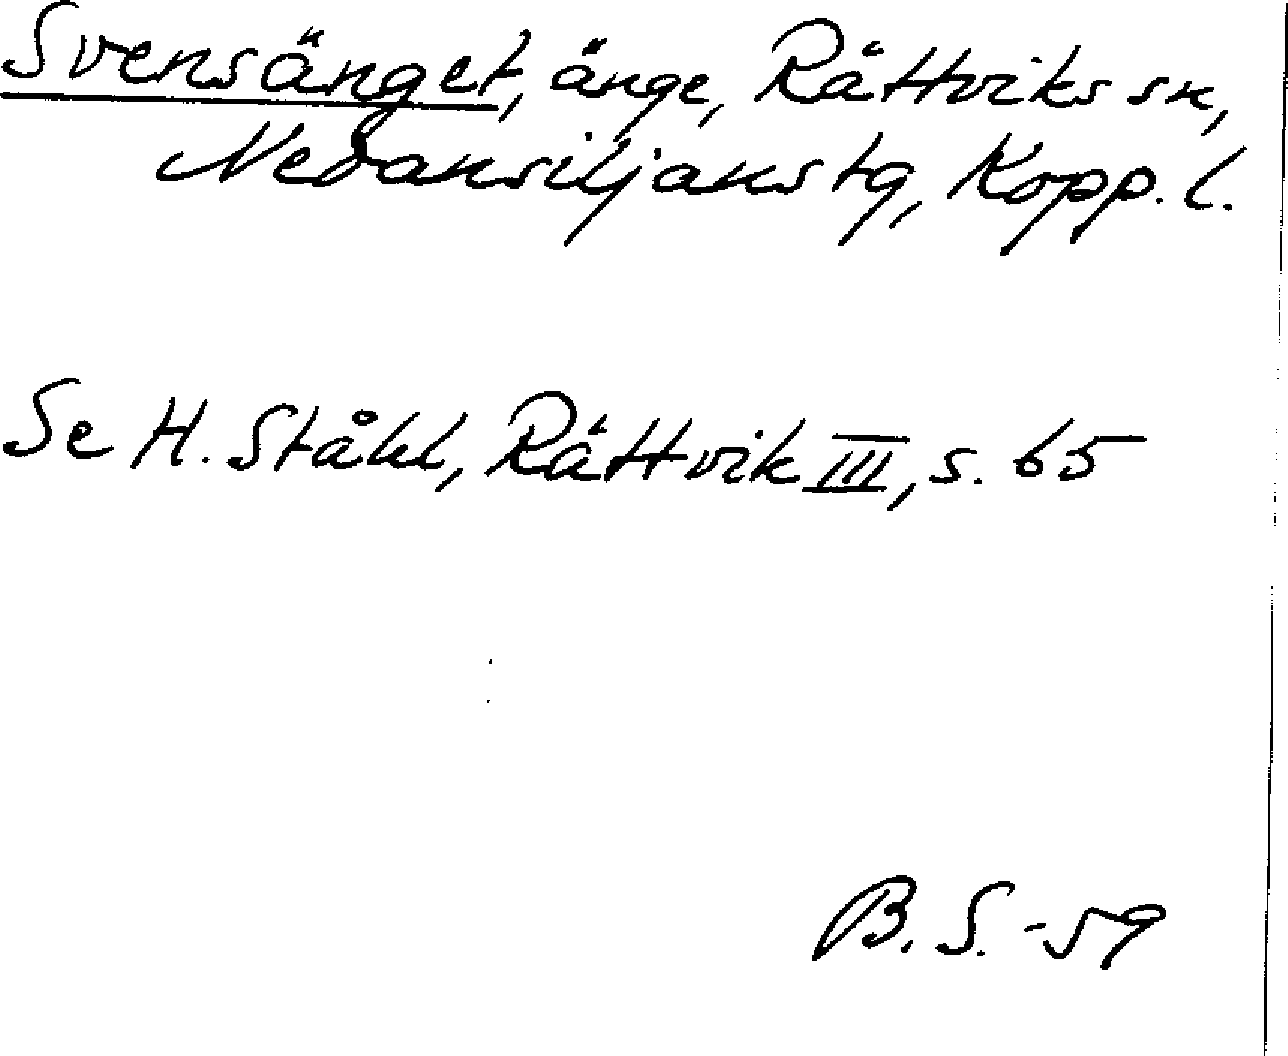 Svensänget, änge, Rättviks sn,
Nedansiljans tg, Kopp. l.
Se H. Ståhl, Rättvik III, s. 65
B. S. -59